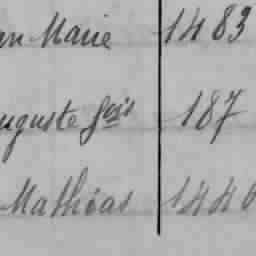 an Marie 1483
uguste fçois 187
Mathias 1446